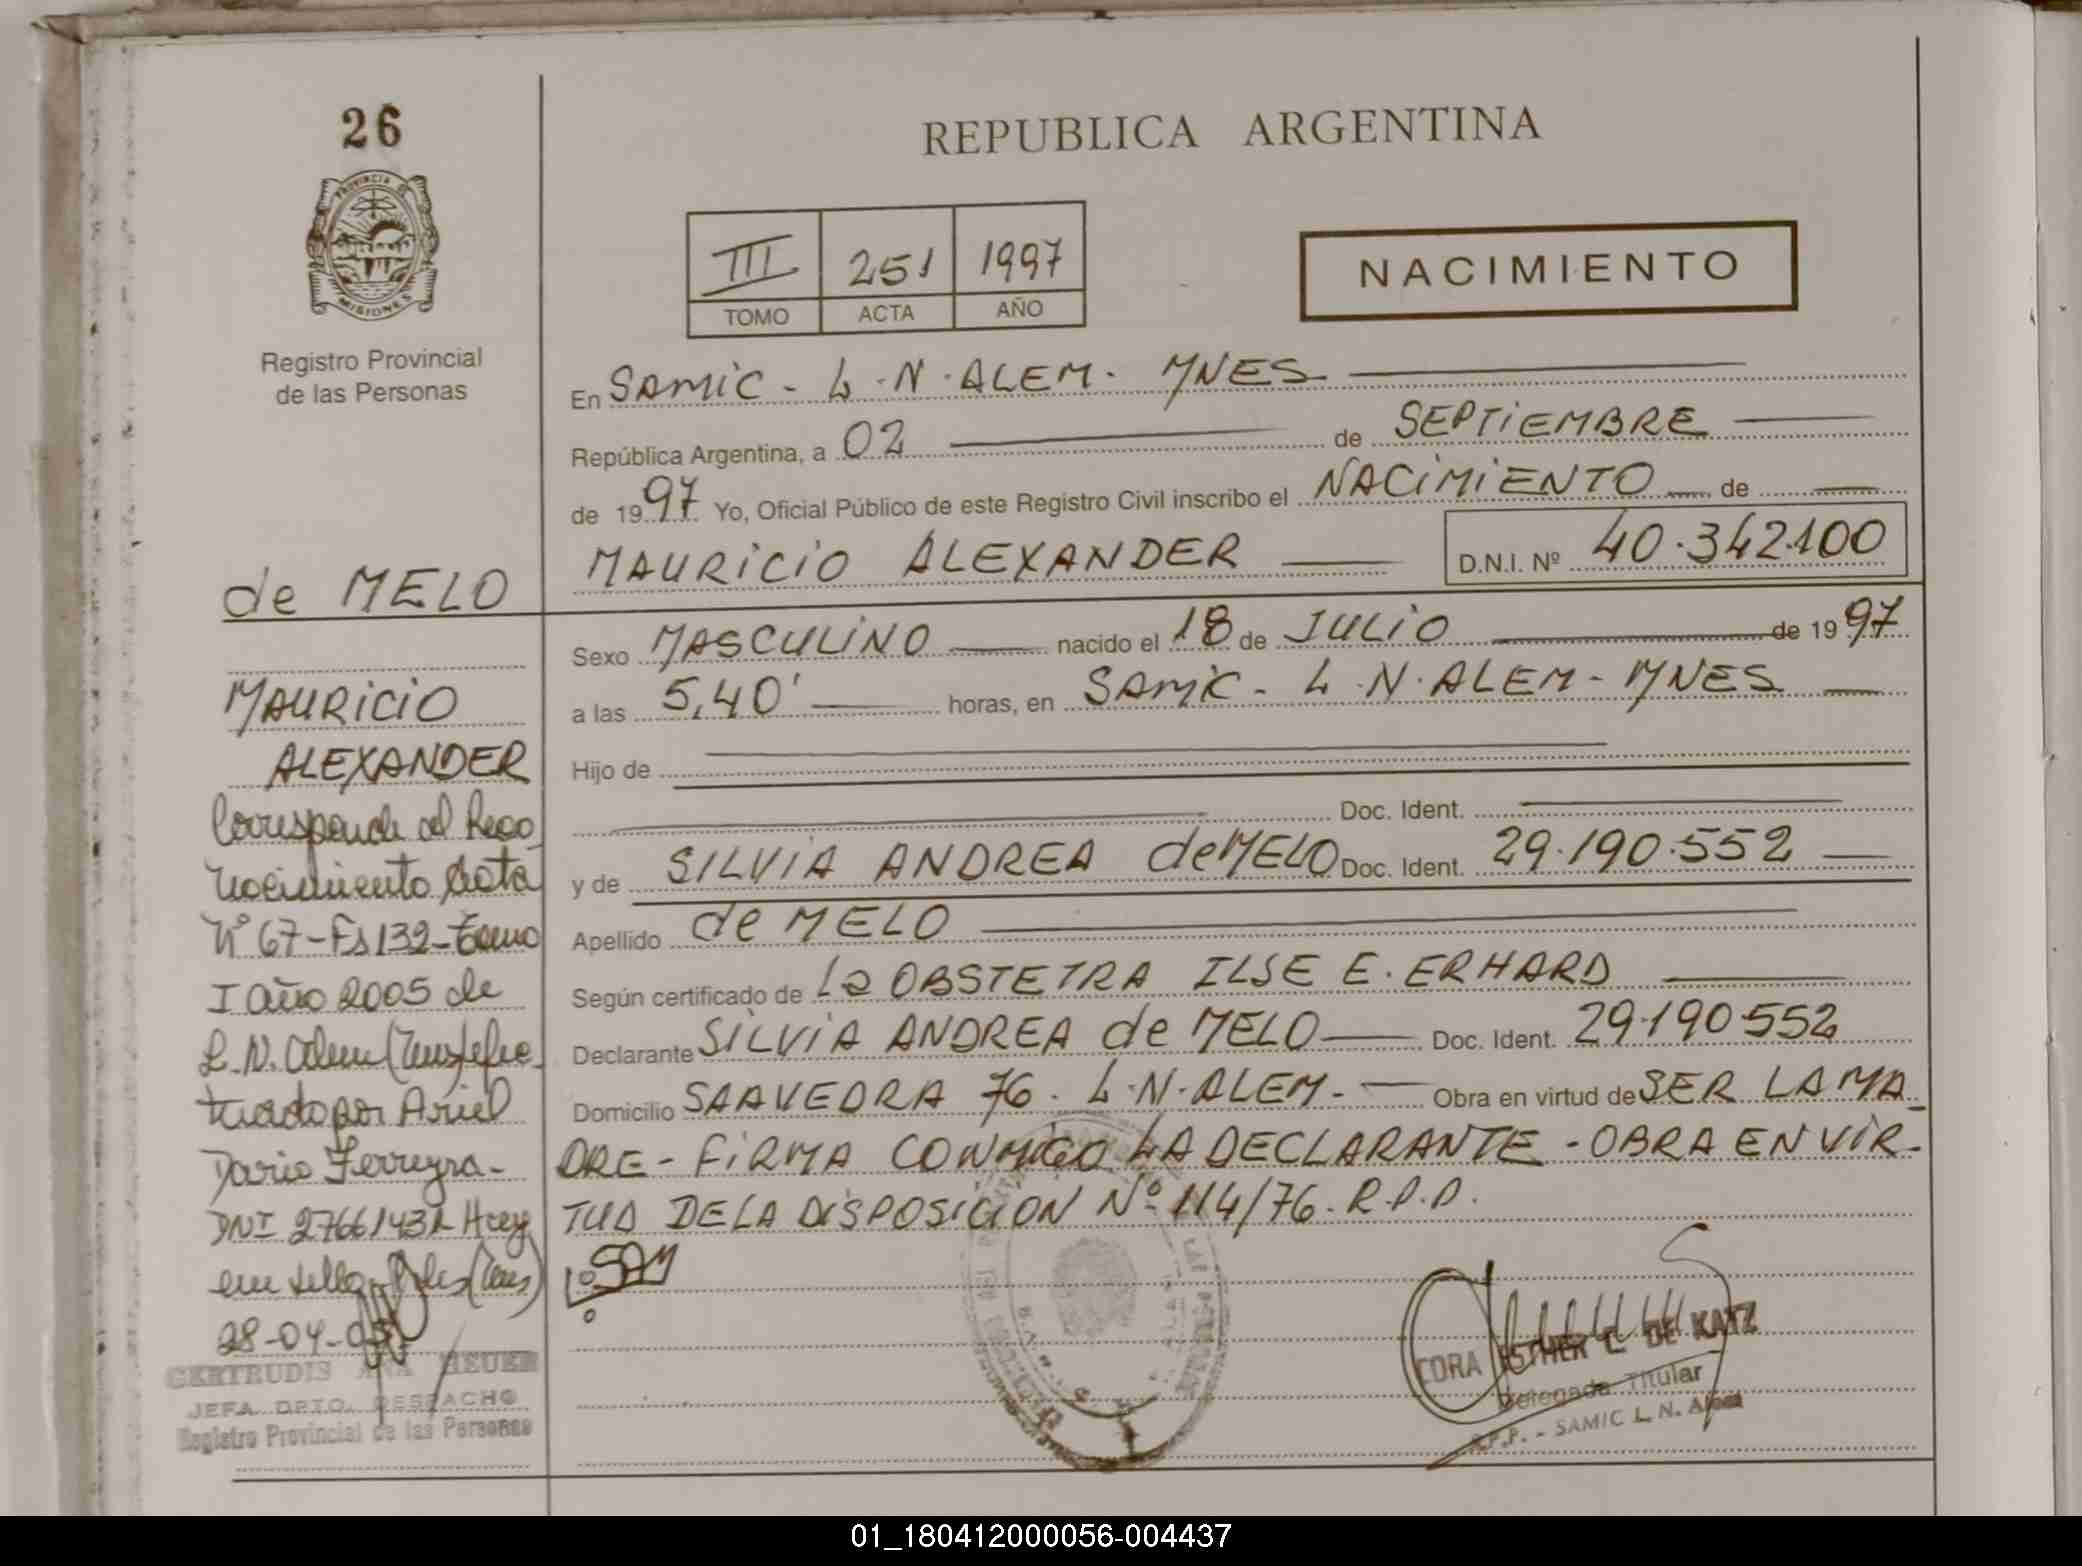 26
PROVINCIA DE
MISIONES
Registro Provincial
de las Personas
de MELO
MAURICIO
ALEXANDER
Corresponde al Reco
nocimiento Acta
Nº 67-Fs 132-Tomo
I Año 2005 de
L.N. Alem (Mnes) efec
tuado por Ariel
Dario Ferreyra-
DNI 27661431 Hay
un sello Pdas (Mnes)
28-04-05
GERTRUDIS ANA HEUER
JEFA DPTO. DESPACHO
Registro Provincial de las Personas
REPUBLICA ARGENTINA
III 251 1997
TOMO ACTA AÑO
NACIMIENTO
En SAMIC - L.N. ALEM - MNES
República Argentina, a 02 de SEPTIEMBRE
de 1997 Yo, Oficial Público de este Registro Civil inscribo el NACIMIENTO de
MAURICIO ALEXANDER D.N.I. Nº 40.342.100
Sexo MASCULINO nacido el 18 de JULIO de 1997
a las 5,40' horas, en SAMIC - L.N. ALEM - MNES
Hijo de
Doc. Ident.
y de SILVIA ANDREA de MELO Doc. Ident. 29.190.552
Apellido de MELO
Según certificado de La OBSTETRA ILSE E. ERHARD
Declarante SILVIA ANDREA de MELO Doc. Ident. 29.190.552
Domicilio SAAVEDRA 76. L.N. ALEM. Obra en virtud de SER LA MA
DRE - FIRMA CONMIGO LA DECLARANTE - OBRA EN VIR-
TUD DE LA DISPOSICION Nº 114/76. R.P.P.
CORA ESTHER C. DE KATZ
Delegada Titular
R.P.P. - SAMIC L. N. Alem
01_180412000056-004437